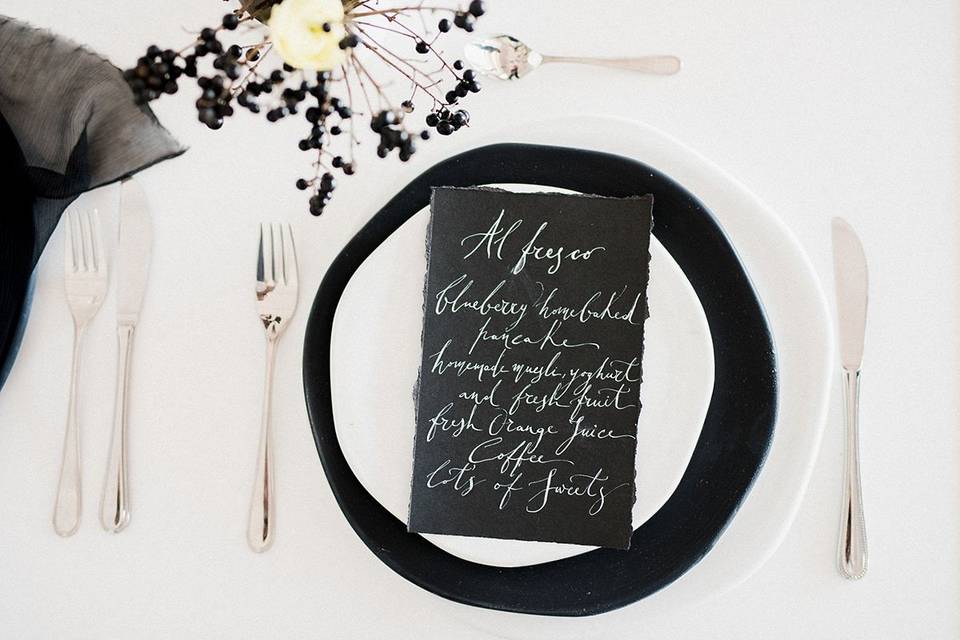 Al fresco
blueberry homebaked
pancake
homemade muesli, yoghurt
and fresh fruit
fresh Orange Juice
Coffee
lots of Sweets